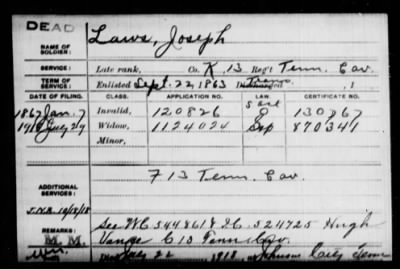 DEAD
NAME OF SOLDIER: Laws, Joseph
SERVICE: Late rank, Co. K, 13 Reg't Tenn. Cav.
TERM OF SERVICE: Enlisted Sept. 22, 1863 Discharged Trans , 1
DATE OF FILING. CLASS. APPLICATION NO. LAW. CERTIFICATE NO.
1867 Jan. 7 Invalid, 120826 130767
1918 July 29 Widow, 1124024 Sep 870341
Minor,
ADDITIONAL SERVICES: F 13 Tenn. Cav.
J.N.A. 10/18/18
REMARKS: See WC 544861 & IC. 524725 Hugh
M. M. Vance C 13 Tenn Cav.
Died July 22 1918, at Johnson City Tenn